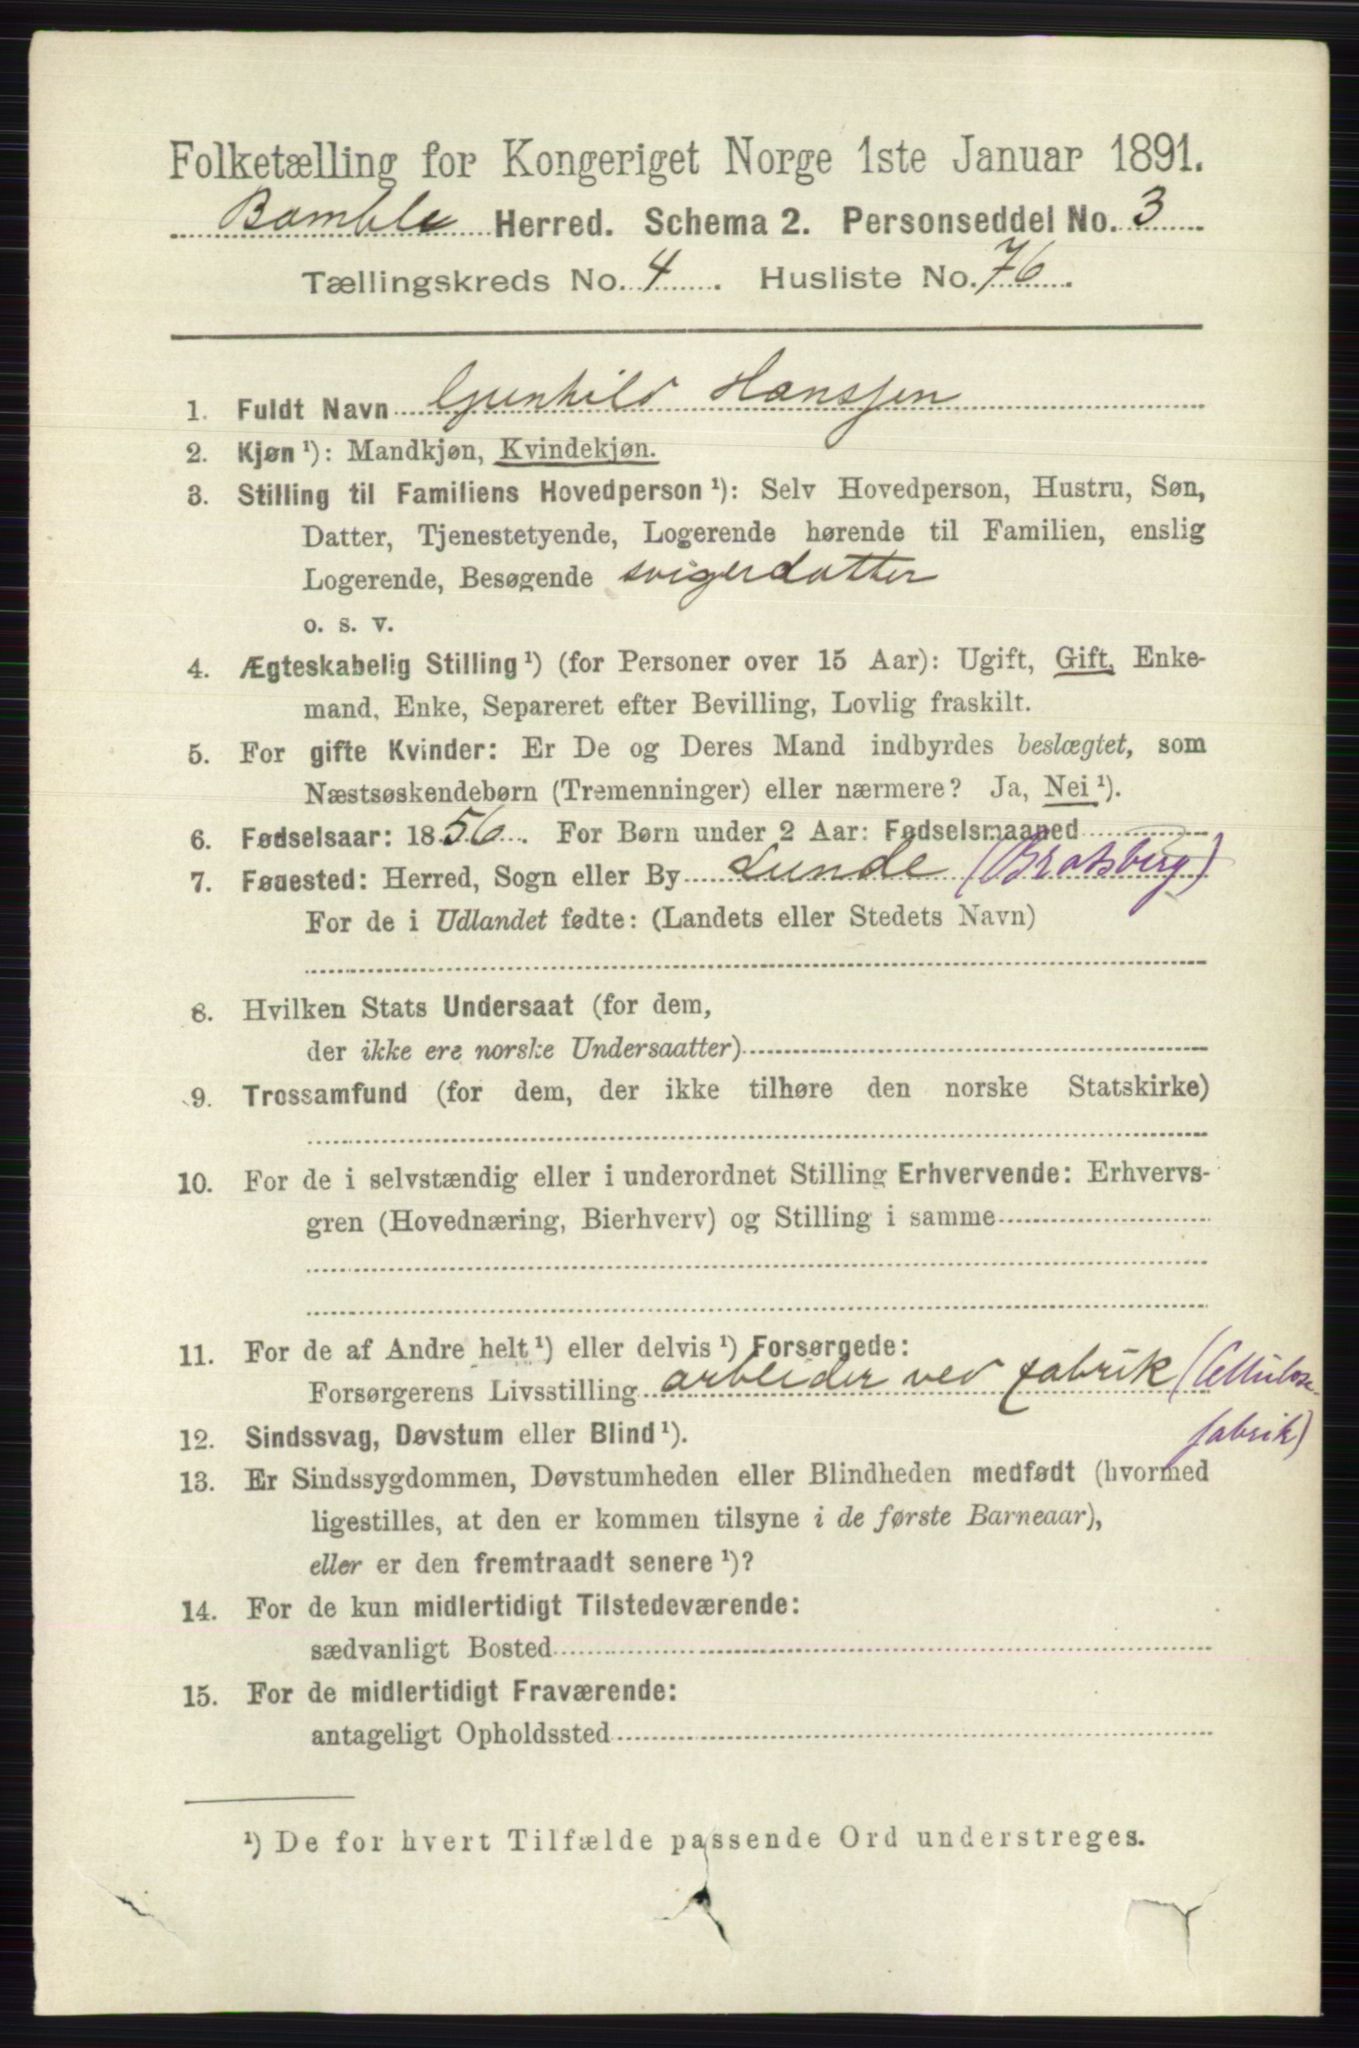 Folketælling for Kongeriget Norge 1ste Januar 1891.
Bamble Herred. Schema 2. Personseddel No. 3
Tællingskreds No. 4. Husliste No. 76.
1. Fuldt Navn Gunhild Hanssen
2. Kjøn ¹): Mandkjøn, Kvindekjøn.
3. Stilling til Familiens Hovedperson ¹): Selv Hovedperson, Hustru, Søn,
Datter, Tjenestetyende, Logerende hørende til Familien, enslig
Logerende, Besøgende svigerdatter
o. s. v.
4. Ægteskabelig Stilling ¹) (for Personer over 15 Aar): Ugift, Gift, Enke-
mand, Enke, Separeret efter Bevilling, Lovlig fraskilt.
5. For gifte Kvinder: Er De og Deres Mand indbyrdes beslægtet, som
Næstsøskendebørn (Tremenninger) eller nærmere? Ja, Nei ¹).
6. Fødselsaar: 1856. For Børn under 2 Aar: Fødselsmaaned
7. Fødested: Herred, Sogn eller By Lunde (Bratsberg)
For de i Udlandet fødte: (Landets eller Stedets Navn)
8. Hvilken Stats Undersaat (for dem,
der ikke ere norske Undersaatter)
9. Trossamfund (for dem, der ikke tilhøre den norske Statskirke)
10. For de i selvstændig eller i underordnet Stilling Erhvervende: Erhvervs-
gren (Hovednæring, Bierhverv) og Stilling i samme
11. For de af Andre helt ¹) eller delvis ¹) Forsørgede:
Forsørgerens Livsstilling arbeider ved fabrik (Cellulose-
fabrik)
12. Sindssvag, Døvstum eller Blind ¹).
13. Er Sindssygdommen, Døvstumheden eller Blindheden medfødt (hvormed
ligestilles, at den er kommen tilsyne i de første Barneaar),
eller er den fremtraadt senere ¹)?
14. For de kun midlertidigt Tilstedeværende:
sædvanligt Bosted
15. For de midlertidigt Fraværende:
antageligt Opholdssted
¹) De for hvert Tilfælde passende Ord understreges.